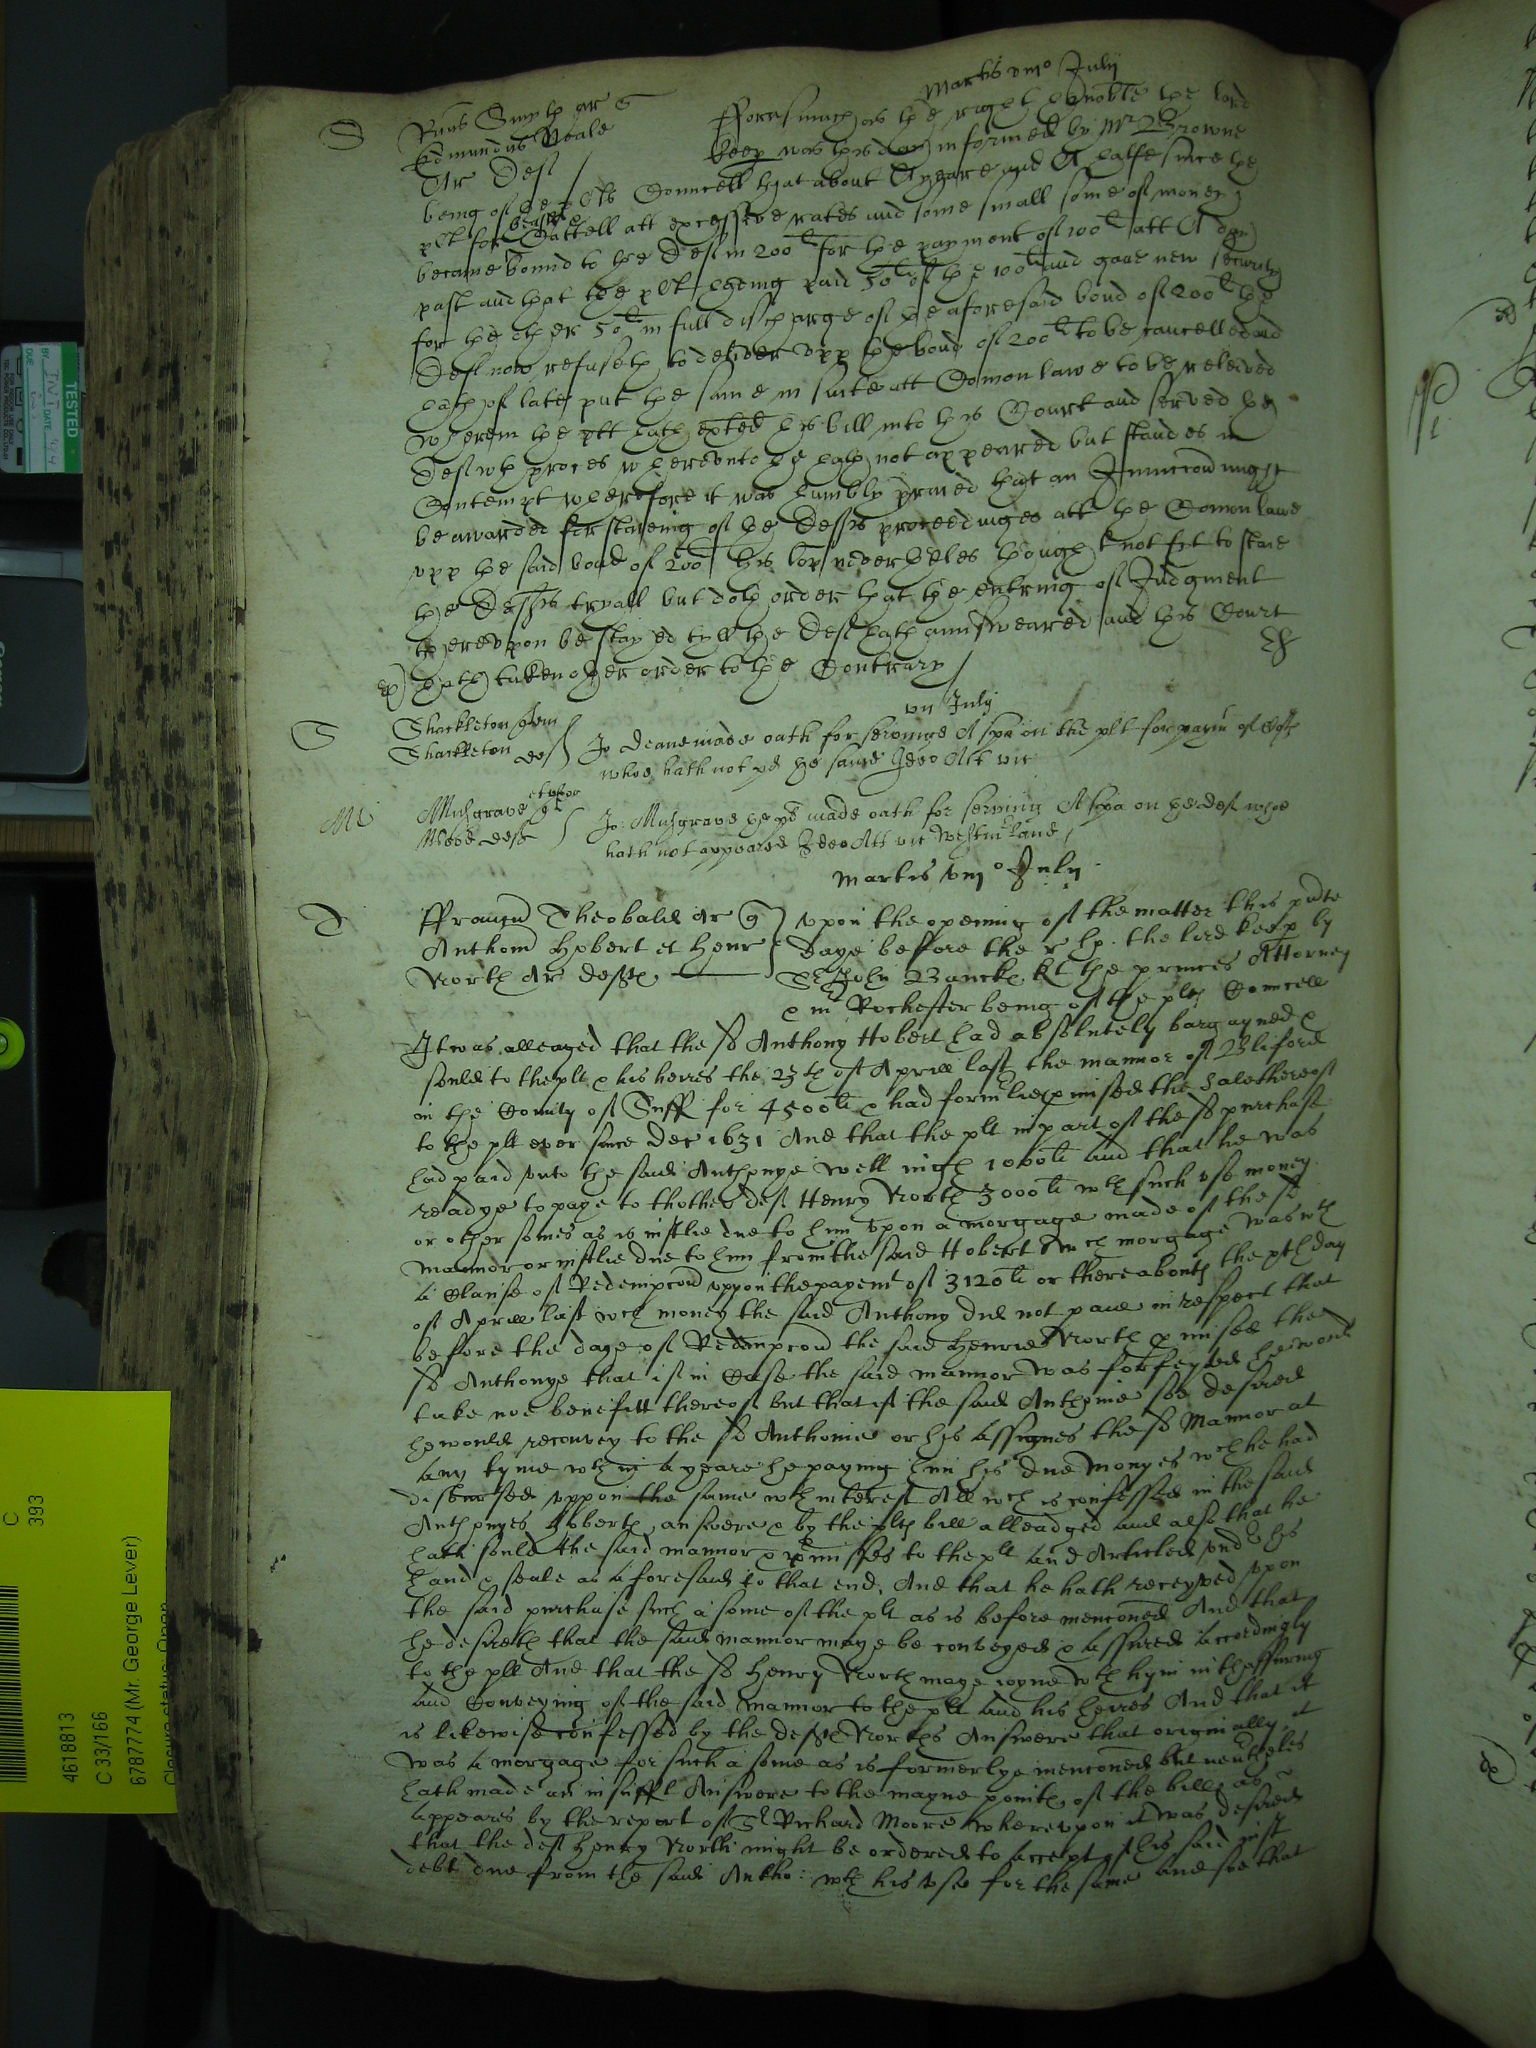 Martis viijo Julij
S
Smyth ar
Edmundus Neale
Ar Def
Fforasmuch as the right hono:ble the lord
keep was this day informed by Mr Browne
being of the plts Councell that about A yeare and A halfe since the
plt for Cattell att excessive rates and some small some of money
became bound to the Def in 200li for the payment of 100li att A day
past and that the plt haveing paid 50li of the 100li and gave new security
for the other 50li in full discharge of the aforesaid bond of 200li the
Def now refuseth to deliver vpp the bond of 200li to be cancelled and
hath of late put the same in suite att Comon lawe to be releived
wherein the plt hath exted his bill into this Court and served the
Def wth proces wherevnto he hath not appeared but standes in
Contempt wherefore it was humbly prayed that an Iniunccon might
be awarded for stayeing of the Defts proceedinges att the Comon lawe
vpp the said bond of 200li his lop neverthles thought not fit to staie
the Defts tryall but doth order that the entring of Judgment
therevpon be stayed till the Def hath answeared and this Court
hath taken other order to the Contrary
vij July
S
Shackleton
Shackleton def
Jo Deane made oath for serving A spa on the plt for paymt of Costs
whoe hath not pd the same Ideo Att vic
M
Musgrave et vxor
def
Jo: Musgrave the plt made oath for serving A spa on the def whoe
hath not appeared Ideo Att vic Westmland
Martis viijo Julij
T
ffrancus Theobald Ar q
Anthoni Hobert et Henr
North Ar defts
vpon the opening of the matter this pnte
daye before the r ho. the lord keep by
Sr John Banckes kt the princes Attorney
& mr Rochester being of the plts Councell
It was alleaged that the sd Anthony Hobert had absolutely bargayned &
sould to the plt & his heires the 23th of Aprill last the mannor of Bliford
in the County of Suff for 4500li & had formlie pmised the sale thereof
to the plt ever since Dec 1631 And that the plt in part of the sd purchase
had paid vnto the said Anthonye well nigh 1000li and that he was
readye to paye to thother def Henry North 3000li wth such vse money
or other somes as is iustlie due to him vpon a morgage made of the sd
mannor or iustlie due to him from the said Hobert wch morgage was wth
a Clause of Redempcon vppon the payemt of 3120li or thereabouts the day
of Aprill last wch money the said Anthony did not paie in respect that
before the daye of Redempcon the said Henrie North pmised the
sd Anthonye that if in Case the said mannor was forfeyted he would
take noe benefitt thereof but that if the said Anthonie soe desired
he would reconvey to the sd Anthonie or his assignes the sd Mannor at
any tyme wthin a yeare he paying him his due Monyes wch he had
disbursed vppon the same wth interest All wch is confessed in the said
Anthonyes Hoberts answere & by the plts bill alleadged and also that he
hath sould the said mannor & pmisses to the plt and Articled vnder his
hand & seale as aforesaid to that end, And that he hath receyved vpon
the said purchase such a some of the plt as is before menconed And that
he desireth that the said mannor maye be conveyed & assured accordingly
to the plt And that the sd Henry North maye ioyne wth hym in thassuring
and Conveying of the said mannor to the plt and his heires And that it
is likewise confessed by the deft Norths Answere that originally it
was a morgage for such a some as is formerlye menconed but neuertheles
hath made an insufft Answere to the mayne points of the bill as
appeares by the report of Sr Richard Moore wherevpon it was desired
that the def Henry North might be ordered to accept of his said iust
debt due from the said Antho: wth his vse for the same and soe that
TESTED
BY
DATE
DUE
C
393
4618813
C 33/166
6787774 (Mr. George Lever)
Closure status: Open